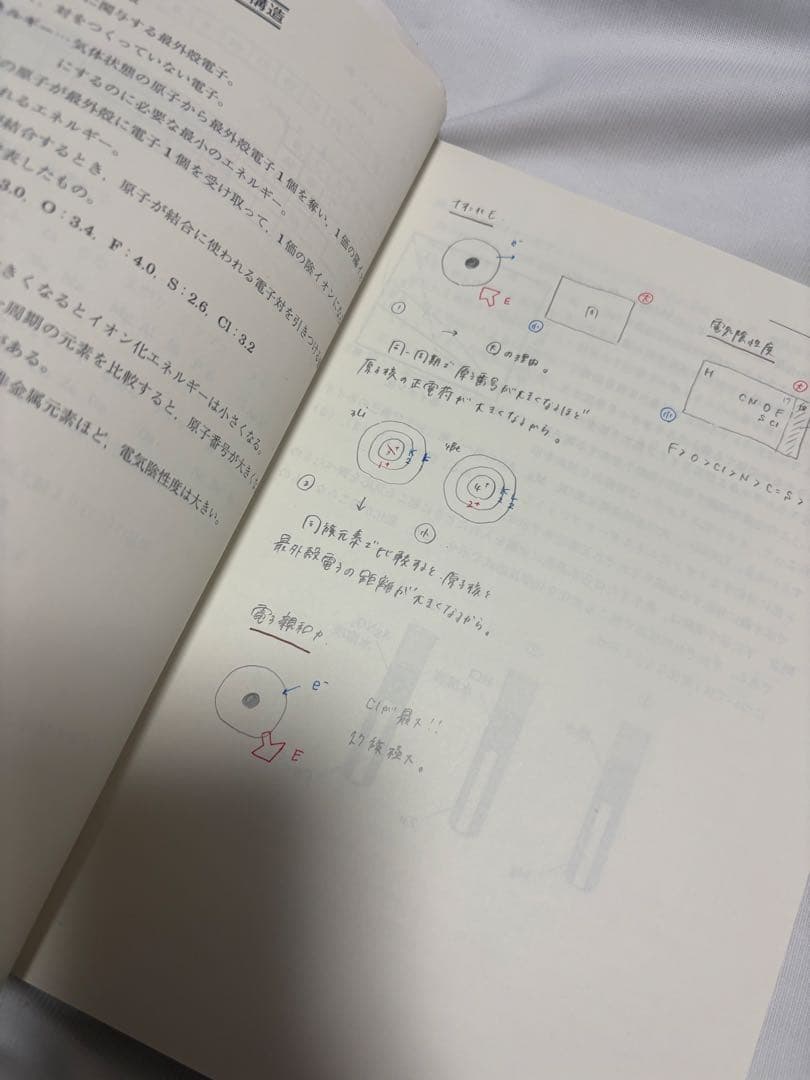 構造
に関与する最外殻電子。
対をつくっていない電子。
ネルギー…気体状態の原子から最外殻電子1個を奪い，1価の陽イ
にするのに必要な最小のエネルギー。
の原子が最外殻に電子1個を受け取って，1価の陰イオンにな
れるエネルギー。
結合するとき，原子が結合に使われる電子対を引きつける
表したもの。
3.0，O：3.4，F：4.0，S：2.6，Cl：3.2
きくなるとイオン化エネルギーは小さくなる。
周期の元素を比較すると，原子番号が大きくな
がある。
非金属元素ほど，電気陰性度は大きい。
イオン化E
e⁻
E
同
大
小
① → 大の理由。
同一周期で原子番号が大きくなるほど
原子核の正電荷が大きくなるから。
₃Li
3+
1+
K
2
₄Be
4+
2+
K L
2 2
② ↓ 小
同族元素で比較すると、原子核と
最外殻電子の距離が大きくなるから。
電子親和力
e⁻
E
Clが最大!!
17族極大。
電気陰性度
大
小
H
17 18
C N O F
S Cl
F > O > Cl > N > C = S >